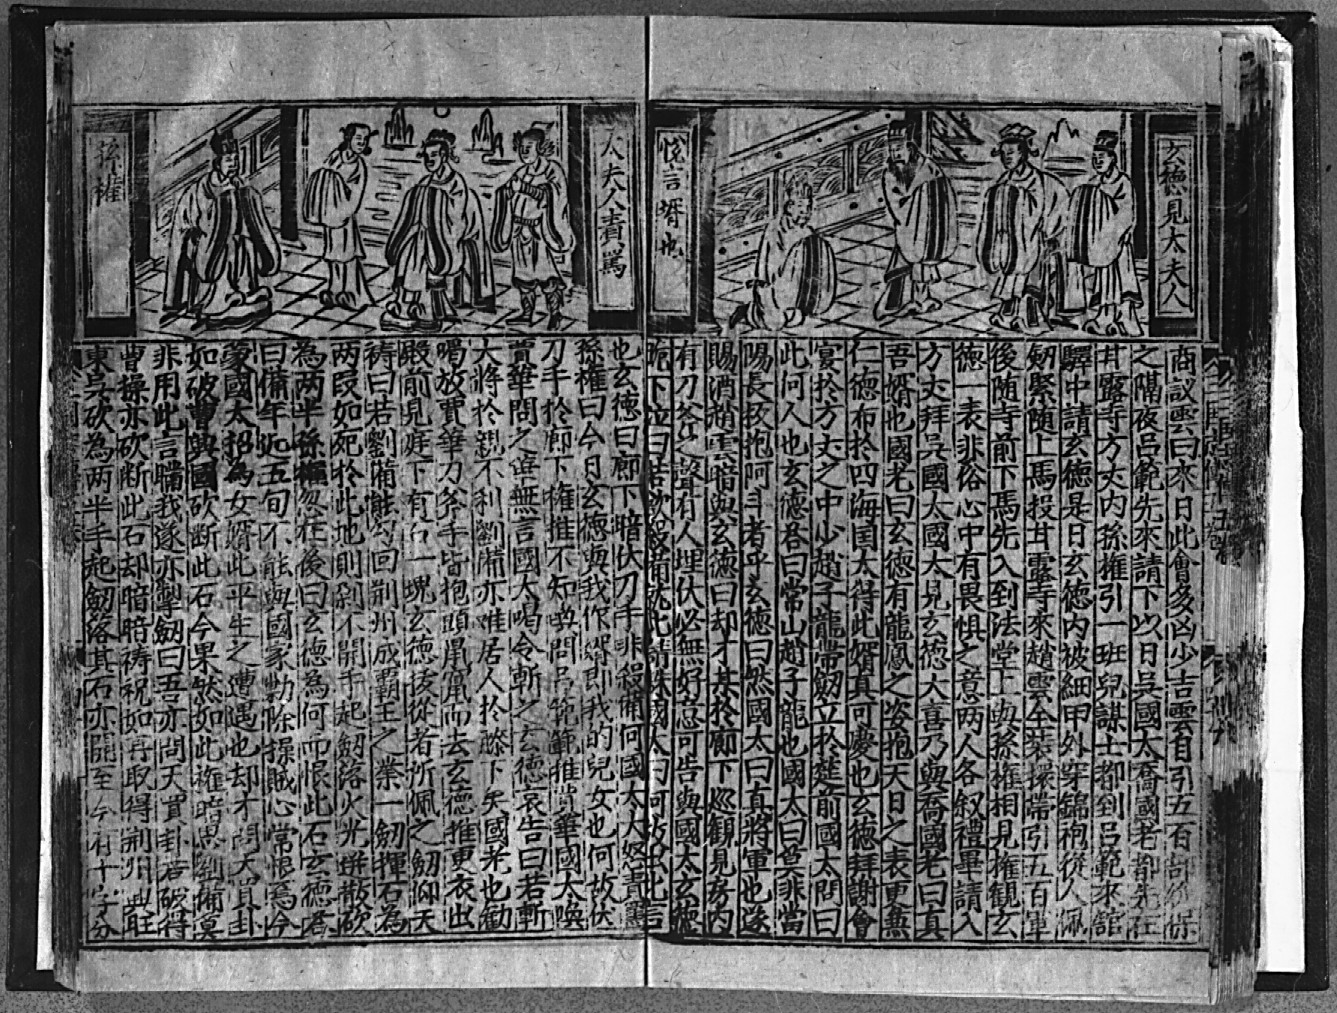 玄德見太夫人
悅言壻也
商議雲曰來日此會多凶少吉雲自引五百部從保
之隔夜呂範先來請下次日吳國太喬國老都先在
甘露寺方丈內孫權引一班兒謀士都到呂範來舘
驛中請玄德是日玄德內被細甲外穿錦袍從人佩
劒緊随上馬投甘露寺來趙雲全裝擐帶引五百軍
後随寺前下馬先入到法堂上與孫權相見權観玄
德一表非俗心中有畏惧之意两人各叙禮畢請入
方丈拜吳國太國太見玄德大喜乃與喬國老曰真
吾婿也國老曰玄德有龍鳳之姿抱天日之表更兼
仁德布於四海国太得此婿真可慶也玄德拜謝會
宴於方丈之中少趍子龍帶劒立於筵前國太問曰
此何人也玄德答曰常山趙子龍也國太曰莫非當
陽長坂抱阿斗者乎玄德曰然國太曰真將軍也遂
賜酒趙雲暗與玄德曰却才某於廊下廵観見房內
有刀斧之聲有人埋伏必無好意可告與國太玄德
跪下泣曰若欲殺備就此請誅國太曰何故出此言
太夫人責罵
孫權
也玄德曰廊下暗伏刀手非殺備何國太大怒責罵
孫權曰今日玄德與我作壻即我的兒女也何故伏
刀手於廊下權推不知喚問呂範範推賈華國太喚
賈華問之華無言國太喝令斬之玄德哀告曰若斬
大將於親不利劉備亦難居人於膝下矣國老也勸
喝放賈華刀斧手皆抱頭鼠竄而去玄德推更衣出
殿前見庭下有石一塊玄德拔從者所佩之劒仰天
祷曰若劉備能勾回荊州成覇王之業一劒揮石為
两叚如死於此地則剁不開手起劒落火光迸散砍
為两半孫權忽在後曰玄德為何而恨此石玄德答
曰備年近五旬不能與國家勦除操賊心常恨焉今
蒙國太招為女婿此平生之遭遇也却才問天買卦
如破曹興國砍断此石今果然如此權暗思劉備莫
非用此言瞞我遂亦掣劒曰吾亦問天買卦若破得
曹操亦砍断此石却暗暗祷祝如再取得荊州興旺
東吳砍為两半手起劒落其石亦開至今有十字分